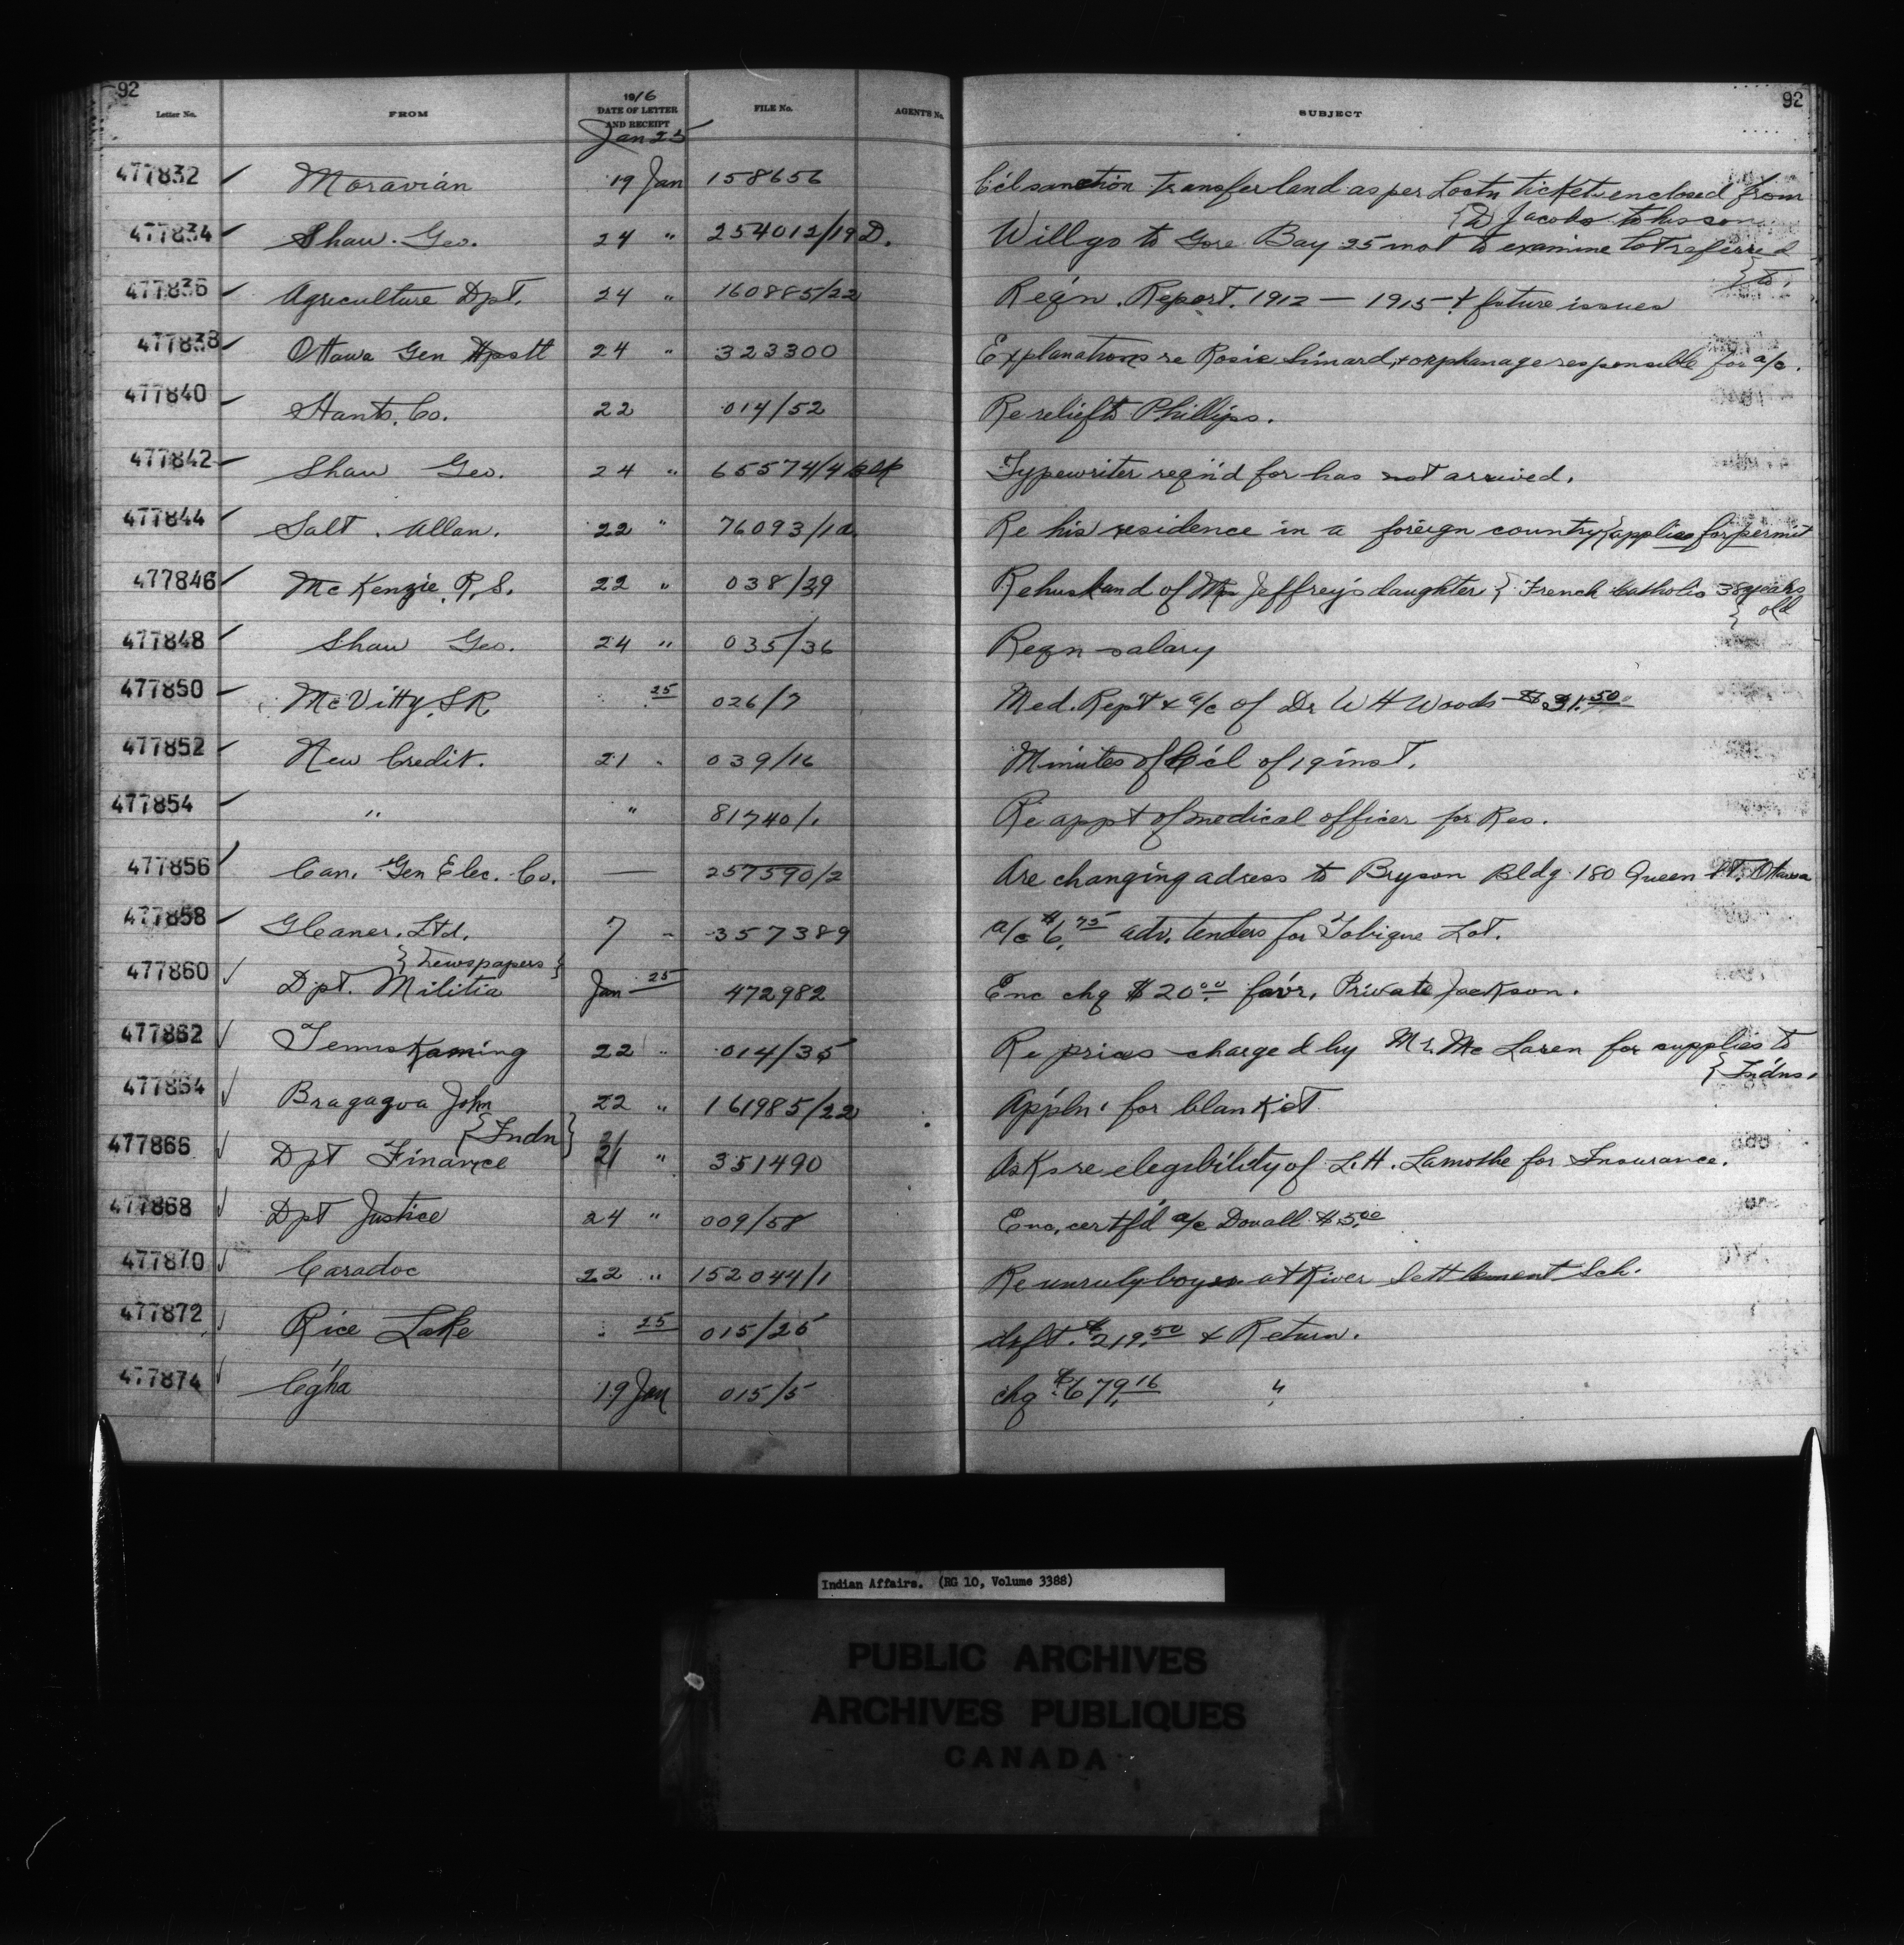 92
92
1916
Letter No. FROM DATE OF LETTER AND RECEIPT FILE No. AGENT'S No. SUBJECT
Jan 25
477832 Moravian 19 Jan 158656 C'cl sanction transfer land as per Loctn ticket enclosed from
{ W Jacobs to his son
477834 Shaw. Geo. 24 " 254012/19 D. Will go to Gore Bay 25 inst to examine lot referred
{ to.
477836 Agriculture Dpt. 24 " 160885/22 Req'n. Report. 1912 — 1915 — & future issues
477838 Ottawa Gen Hpstl 24 " 323300 Explanations re Rosie Simard, & orphanage responsible for a/c.
477840 Hants. Co. 22 014/52 Re relief to Phillips.
477842 Shaw Geo. 24 " 65574/4 Typewriter reqn'd for has not arrived.
477844 Salt. Allan. 22 " 76093/1a Re his residence in a foreign country { applies for permit
477846 McKenzie, R.S. 22 " 038/29 Re husband of Mr Jeffrey's daughter { French Catholic 38 years
{ old
477848 Shaw Geo. 24 " 035/36 Reqn salary
477850 McVitty, S.R. 25 026/7 Med. Rept & a/c of Dr W H Woods $31.50
477852 New Credit. 21 " 039/16 Minutes of C'cl of 19 inst.
477854 " " 81740/1 Re appt of medical officer for Res.
477856 Can. Gen Elec. Co. — 257590/2 Are changing adress to Bryson Bldg 180 Queen St. Ottawa
477858 Gleaner. Ltd. 7 - 357389 a/c $6.75 adv. tenders for Tobique Lot.
{ Newspapers }
477860 Dpt. Militia Jan 25 472982 Enc chq $20.00 fav'r. Private Jackson.
477862 Temiskaming 22 " 014/35 Re prices charged by Mr. McLaren for supplies to
{ Indns.
477864 Bragagva John 22 " 161985/22 Appln. for blanket
{ Indn }
477866 Dpt Finance 21 " 351490 Asks re elegibility of L.H. Lamothe for Insurance.
477868 Dpt Justice 24 " 009/58 Enc. certf'd a/c Douall $5.00
477870 Caradoc 22 " 152044/1 Re unruly boys at River Settlement Sch.
477872 Rice Lake 25 015/25 drft. $219.50 & Return.
477874 C'gha 19 Jan 015/5 chq $679.16 "
Indian Affairs. (RG 10, Volume 3388)
PUBLIC ARCHIVES
ARCHIVES PUBLIQUES
CANADA